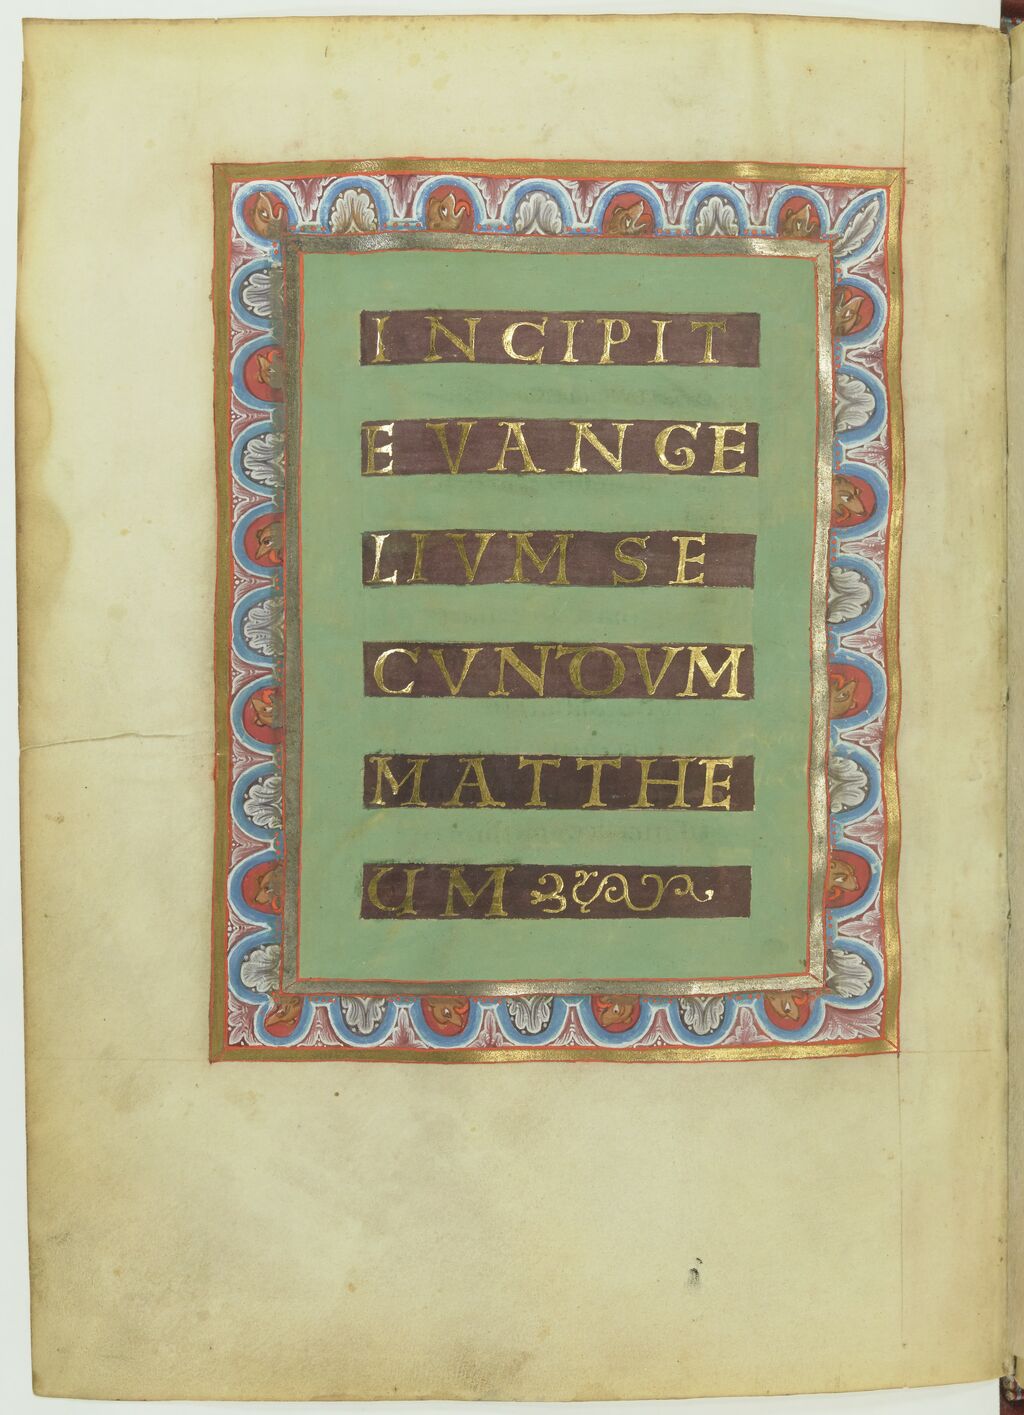 INCIPIT
EVANGE
LIVM SE
CVNDVM
MATTHE
UM